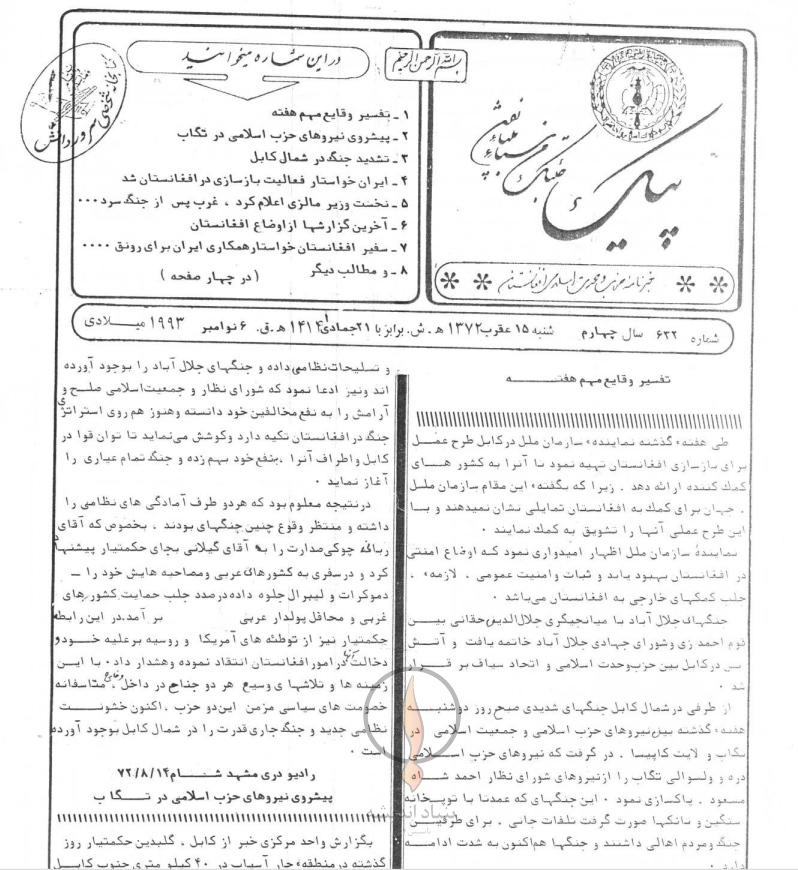 بسم الله الرحمن الرحیم
پیک
خبرنامه حزب وحدت اسلامی افغانستان
در این شماره میخوانید
۱ ـ تفسیر وقایع مهم هفته
۲ ـ پیشروی نیروهای حزب اسلامی در تگاب
۳ ـ تشدید جنگ در شمال کابل
۴ ـ ایران خواستار فعالیت بازسازی در افغانستان شد
۵ ـ نخست وزیر مالزی اعلام کرد ، غرب پس از جنگ سرد ۰۰۰
۶ ـ آخرین گزارشها از اوضاع افغانستان
۷ ـ سفیر افغانستان خواستار همکاری ایران برای رونق ۰۰۰۰
۸ ـ و مطالب دیگر (در چهار صفحه )
شماره ۶۲۲ سال چهارم شنبه ۱۵ عقرب ۱۳۷۲ هـ.ش. برابر با ۲۱ جمادی۱ ۱۴۱۴ هـ.ق. ۶ نوامبر ۱۹۹۳ میلادی
تفسیر وقایع مهم هفتـــه
طی هفته گذشته نماینده سازمان ملل در کابل طرح عمل
برای بازسازی افغانستان تهیه نمود تا آنرا به کشور های
کمک کننده ارائه دهد . زیرا که بگفته این مقام سازمان ملل
، جهان برای کمک به افغانستان تمایلی نشان نمیدهند و با
این طرح عملی آنها را تشویق به کمک نمایند ۰
نمایندهٔ سازمان ملل اظهار امیدواری نمود که اوضاع امنتی
در افغانستان بهبود یابد و ثبات وامنیت عمومی ، لازمه ،
جلب کمکهای خارجی به افغانستان می‌باشد ۰
جنگهای جلال آباد با میانجیگری جلال‌الدین حقانی بین
قوم احمد زی وشورای جهادی جلال آباد خاتمه یافت و آتش
بس در کابل بین حزب وحدت اسلامی و اتحاد سیاف بر قرار
شد ۰
از طرفی در شمال کابل جنگهای شدیدی صبح روز دوشنبه
هفته گذشته بین نیروهای حزب اسلامی و جمعیت اسلامی در
تگاب و لایت کاپیسا . در گرفت که نیروهای حزب اسلامی
دره و ولسوالی تگاب را از نیروهای شورای نظار احمد شاه
مسعود . پاکسازی نمود ۰ این جنگهای که عمدتا با توپخانه
سنگین و تانکها صورت گرفت تلفات جانی ، برای طرفین
جنگ و مردم اهالی داشتند و جنگها هم‌اکنون به شدت ادامه
دارد ۰
و تسلیحات نظامی داده و جنگهای جلال آباد را بوجود آورده
اند ونیز ادعا نمود که شورای نظار و جمعیت اسلامی صلح و
آرامش را به نفع مخالفین خود دانسته وهنوز هم روی استراتژی
جنگ در افغانستان تکیه دارد وکوشش می‌نماید تا توان قوا در
کابل واطراف آنرا ، بنفع خود بهم زده و جنگ تمام عیاری را
آغاز نماید ۰
در نتیجه معلوم بود که هر دو طرف آمادگی های نظامی را
داشته و منتظر وقوع چنین جنگهای بودند . بخصوص که آقای
ربانی چوکی صدارت را به آقای گیلانی بجای حکمتیار پیشنهاد
کرد و در سفری به کشورهای عربی ومصاحبه هایش خود را ـ
دموکرات و لیبرال جلوه داده درصدد جلب حمایت کشور های
غربی و محافل پولدار عربی بر آمد. در این رابطه
حکمتیار نیز از توطئه های آمریکا و روسیه بر علیه خود و
دخالت آنها در امور افغانستان انتقاد نموده وهشدار داد۰ با این
زمینه ها و تلاشهای وسیع هر دو جناح در داخل و خارج ، متاسفانه
خصومت های سیاسی مزمن این دو حزب . اکنون خشونت
نظامی جدید و جنگ جاری قدرت را در شمال کابل بوجود آورده
است ۰
رادیو دری مشهد شـــام ۷۲/۸/۱۴
پیشروی نیروهای حزب اسلامی در تگاب
بگزارش واحد مرکزی خبر از کابل ، گلبدین حکمتیار روز
گذشته در منطقه چار آسیاب در ۴۰ کیلو متری جنوب کابل
بنیاد اندیشه